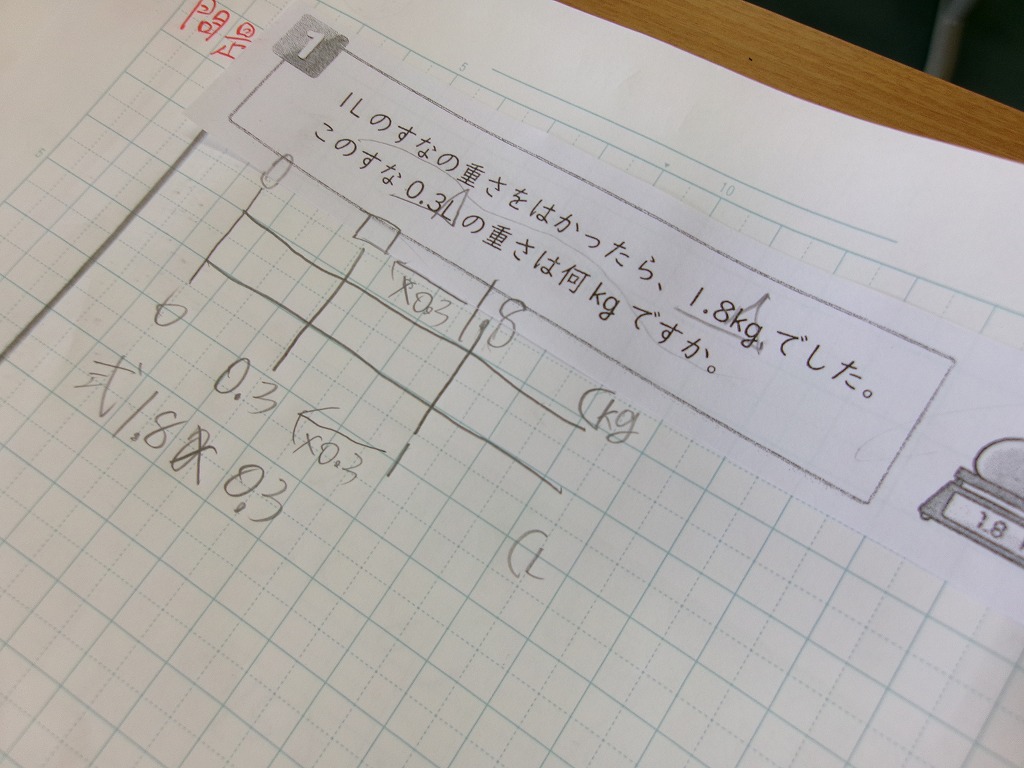 問題
1
1Lのすなの重さをはかったら、1.8kgでした。
このすな0.3Lの重さは何kgですか。
5
10
5
0 □ 1.8 (kg
×0.3
0 0.3 (L
×0.3
式 1.8×0.3
1.8